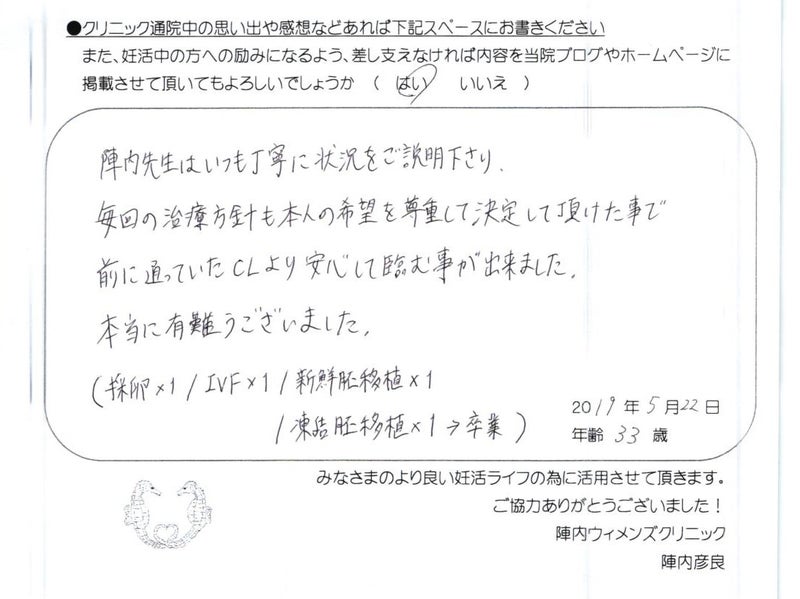 ●クリニック通院中の思い出や感想などあれば下記スペースにお書きください
また、妊活中の方への励みになるよう、差し支えなければ内容を当院ブログやホームページに
掲載させて頂いてもよろしいでしょうか （ はい いいえ ）
陣内先生はいつも丁寧に状況をご説明下さり、
毎回の治療方針も本人の希望を尊重して決定して頂けた事で
前に通っていたCLより安心して臨む事が出来ました。
本当に有難うございました。
(採卵×1 / IVF×1 / 新鮮胚移植×1
/ 凍結胚移植×1 → 卒業 )
2019年5月22日
年齢 33 歳
みなさまのより良い妊活ライフの為に活用させて頂きます。
ご協力ありがとうございました！
陣内ウィメンズクリニック
陣内彦良